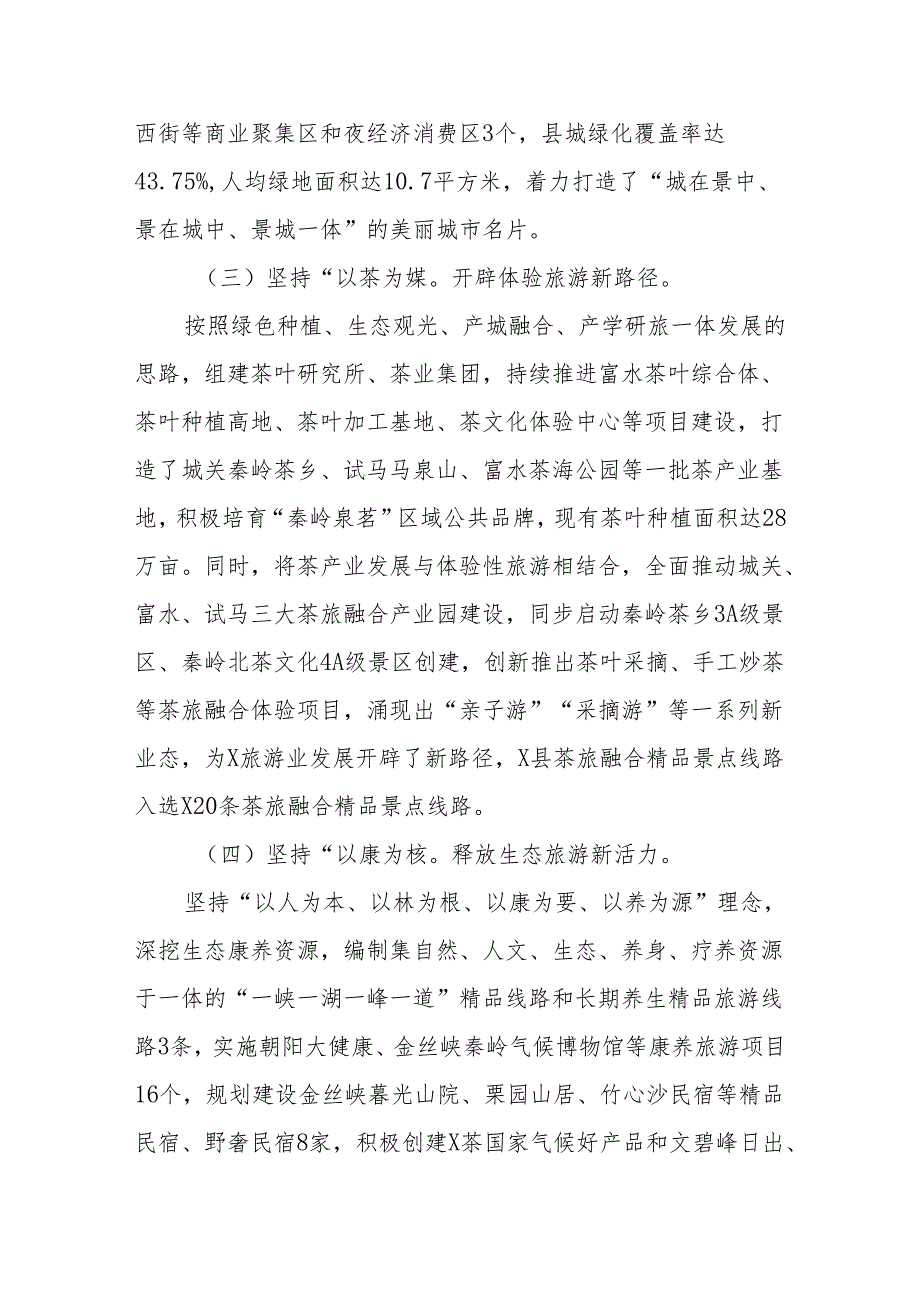 西街等商业聚集区和夜经济消费区3个，县城绿化覆盖率达
43.75%,人均绿地面积达10.7平方米，着力打造了“城在景中、
景在城中、景城一体”的美丽城市名片。
（三）坚持“以茶为媒。开辟体验旅游新路径。
按照绿色种植、生态观光、产城融合、产学研旅一体发展的
思路，组建茶叶研究所、茶业集团，持续推进富水茶叶综合体、
茶叶种植高地、茶叶加工基地、茶文化体验中心等项目建设，打
造了城关秦岭茶乡、试马马泉山、富水茶海公园等一批茶产业基
地，积极培育“秦岭泉茗”区域公共品牌，现有茶叶种植面积达28
万亩。同时，将茶产业发展与体验性旅游相结合，全面推动城关、
富水、试马三大茶旅融合产业园建设，同步启动秦岭茶乡3A级景
区、秦岭北茶文化4A级景区创建，创新推出茶叶采摘、手工炒茶
等茶旅融合体验项目，涌现出“亲子游”“采摘游”等一系列新
业态，为X旅游业发展开辟了新路径，X县茶旅融合精品景点线路
入选X20条茶旅融合精品景点线路。
（四）坚持“以康为核。释放生态旅游新活力。
坚持“以人为本、以林为根、以康为要、以养为源”理念，
深挖生态康养资源，编制集自然、人文、生态、养身、疗养资源
于一体的“一峡一湖一峰一道”精品线路和长期养生精品旅游线
路3条，实施朝阳大健康、金丝峡秦岭气候博物馆等康养旅游项目
16个，规划建设金丝峡暮光山院、栗园山居、竹心沙民宿等精品
民宿、野奢民宿8家，积极创建X茶国家气候好产品和文碧峰日出、